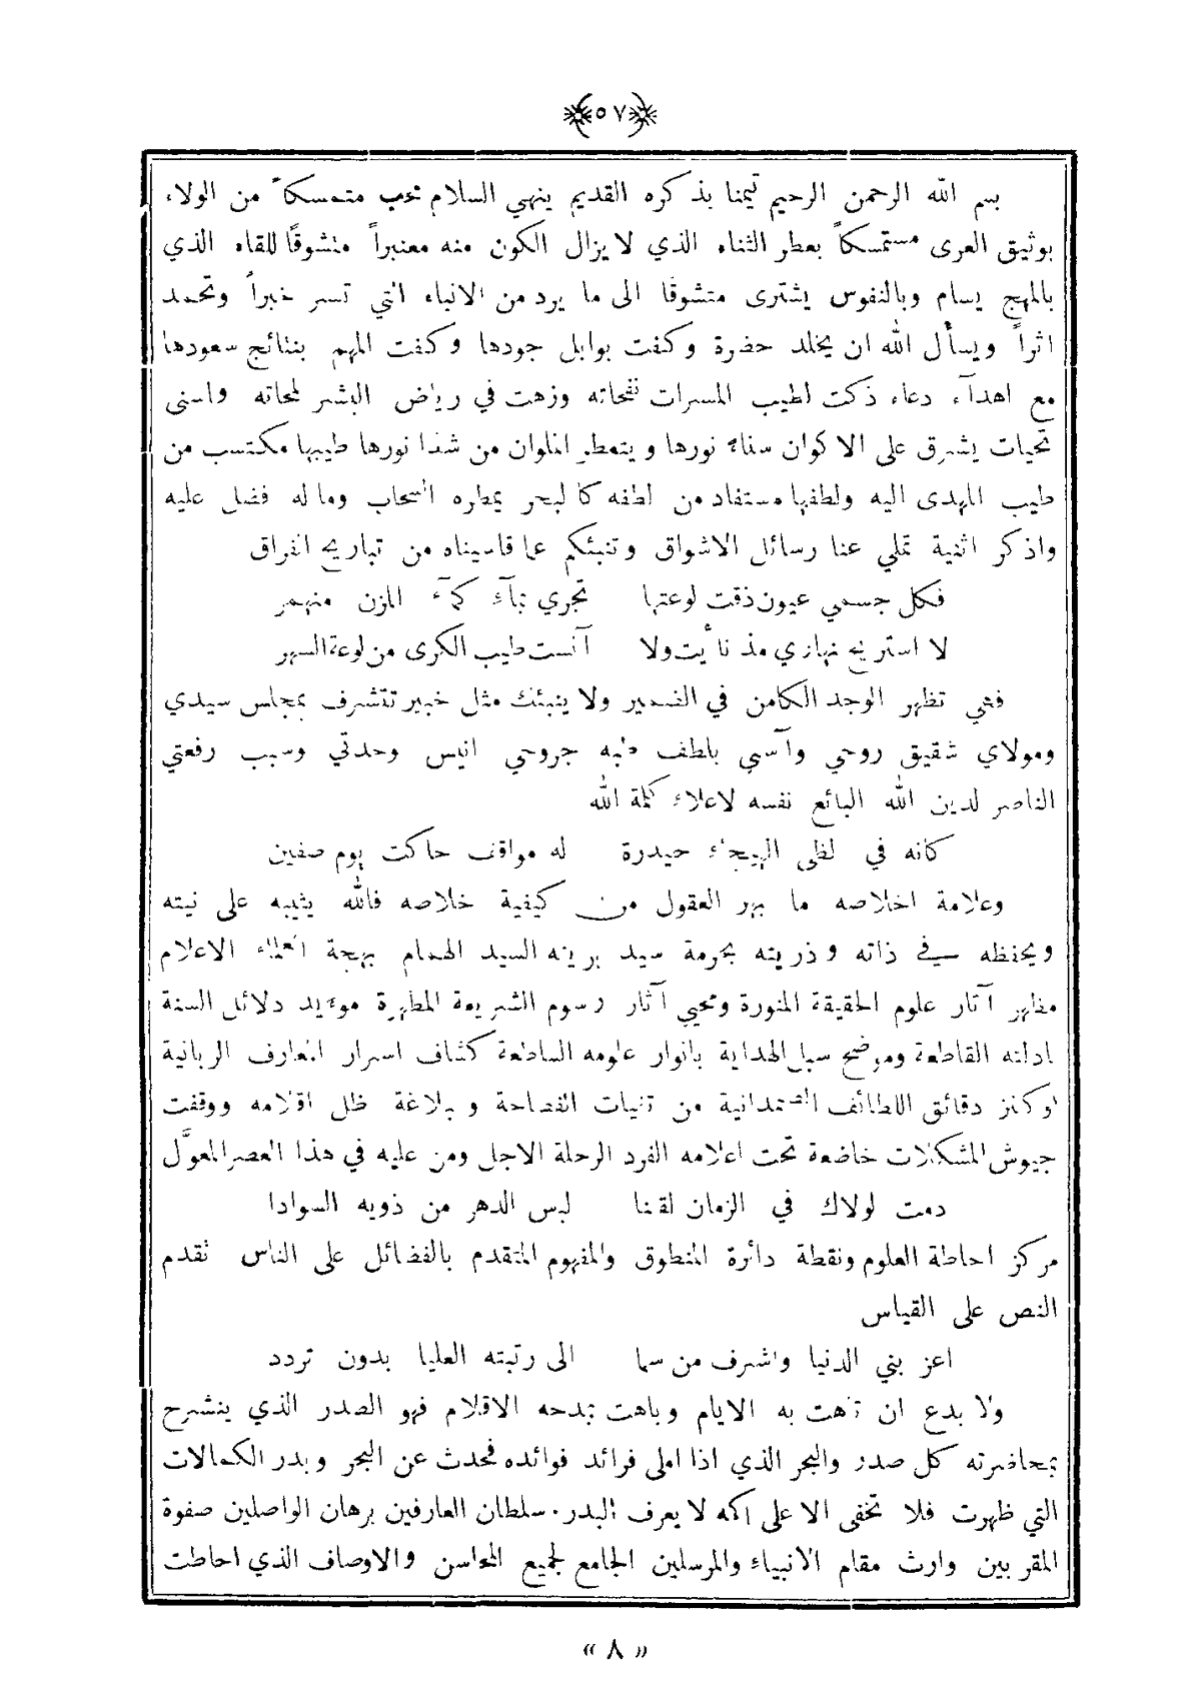 ٥٧
بسم الله الرحمن الرحيم تيمنا بذكره القديم ينهي السلام محب متمسكاً من الولاء
بوثيق العرى مستمسكاً بعطر الثناء الذي لا يزال الكون منه معنبراً متشوقاً للقاء الذي
بالمهج يسام وبالنفوس يشترى متشوقا الى ما يرد من الانباء التي تسر خبراً وتحمد
اثراً ويسأل الله ان يخلد حضرة وكفت بوابل جودها وكفت المهم بنتائج سعودها
مع اهدآء دعاء ذكت لطيب المسرات نفحاته وزهت في رياض البشر لمحاته واسنى
تحيات يشرق على الاكوان سناء نورها ويتعطر الملوان من شذا نورها طيبها مكتسب من
طيب المهدى اليه ولطفها مستفاد من لطفه كالبحر يمطره السحاب وما له فضل عليه
واذكر اثنية تملي عنا رسائل الاشواق وتنبئكم عما قاسيناه من تباريح الفراق
فكل جسمي عيون ذقت لوعتها تجري بمآء كمآء المزن منهمر
لا استريح نهاري مذ نأيت ولا آنست طيب الكرى من لوعة السهر
فهي تظهر الوجد الكامن في الضمير ولا ينبئك مثل خبير تتشرف بمجلس سيدي
ومولاي شقيق روحي وآسي بلطف طبه جروحي انيس وحدتي وسبب رفعتي
الناصر لدين الله البائع نفسه لاعلاء كلمة الله
كانه في لظى الهيجاء حيدرة له مواقف حاكت يوم صفين
وعلامة اخلاصه ما بهر العقول من كيفية خلاصه فالله يثيبه على نيته
ويحفظه في ذاته وذريته بحرمة سيد بريته السيد الهمام بهجة العلماء الاعلام
مظهر آثار علوم الحقيقة المنورة ومحيي آثار رسوم الشريعة المطهرة مؤيد دلائل السنة
بادلته القاطعة وموضح سبل الهداية بانوار علومه الساطعة كشاف اسرار المعارف الربانية
وكنز دقائق اللطائف الصمدانية من ثنيات الفصاحة وبلاغة ظل اقلامه ووقفت
جيوش المشكلات خاضعة تحت اعلامه الفرد الرحلة الاجل ومن عليه في هذا العصر المعوَّل
دمت لولاك في الزمان لقنا لبس الدهر من ذويه السوادا
مركز احاطة العلوم ونقطة دائرة المنطوق والمفهوم المتقدم بالفضائل على الناس تقدم
النص على القياس
اعز بني الدنيا واشرف من سما الى رتبته العليا بدون تردد
ولا بدع ان تاهت به الايام وباهت بمدحه الاقلام فهو الصدر الذي ينشرح
بمحاضرته كل صدر والبحر الذي اذا املى فرائد فوائده فحدث عن البحر وبدر الكمالات
التي ظهرت فلا تخفى الا على اكمه لا يعرف البدر. سلطان العارفين برهان الواصلين صفوة
المقربين وارث مقام الانبياء والمرسلين الجامع لجميع المحاسن والاوصاف الذي احاطت
« ٨ »